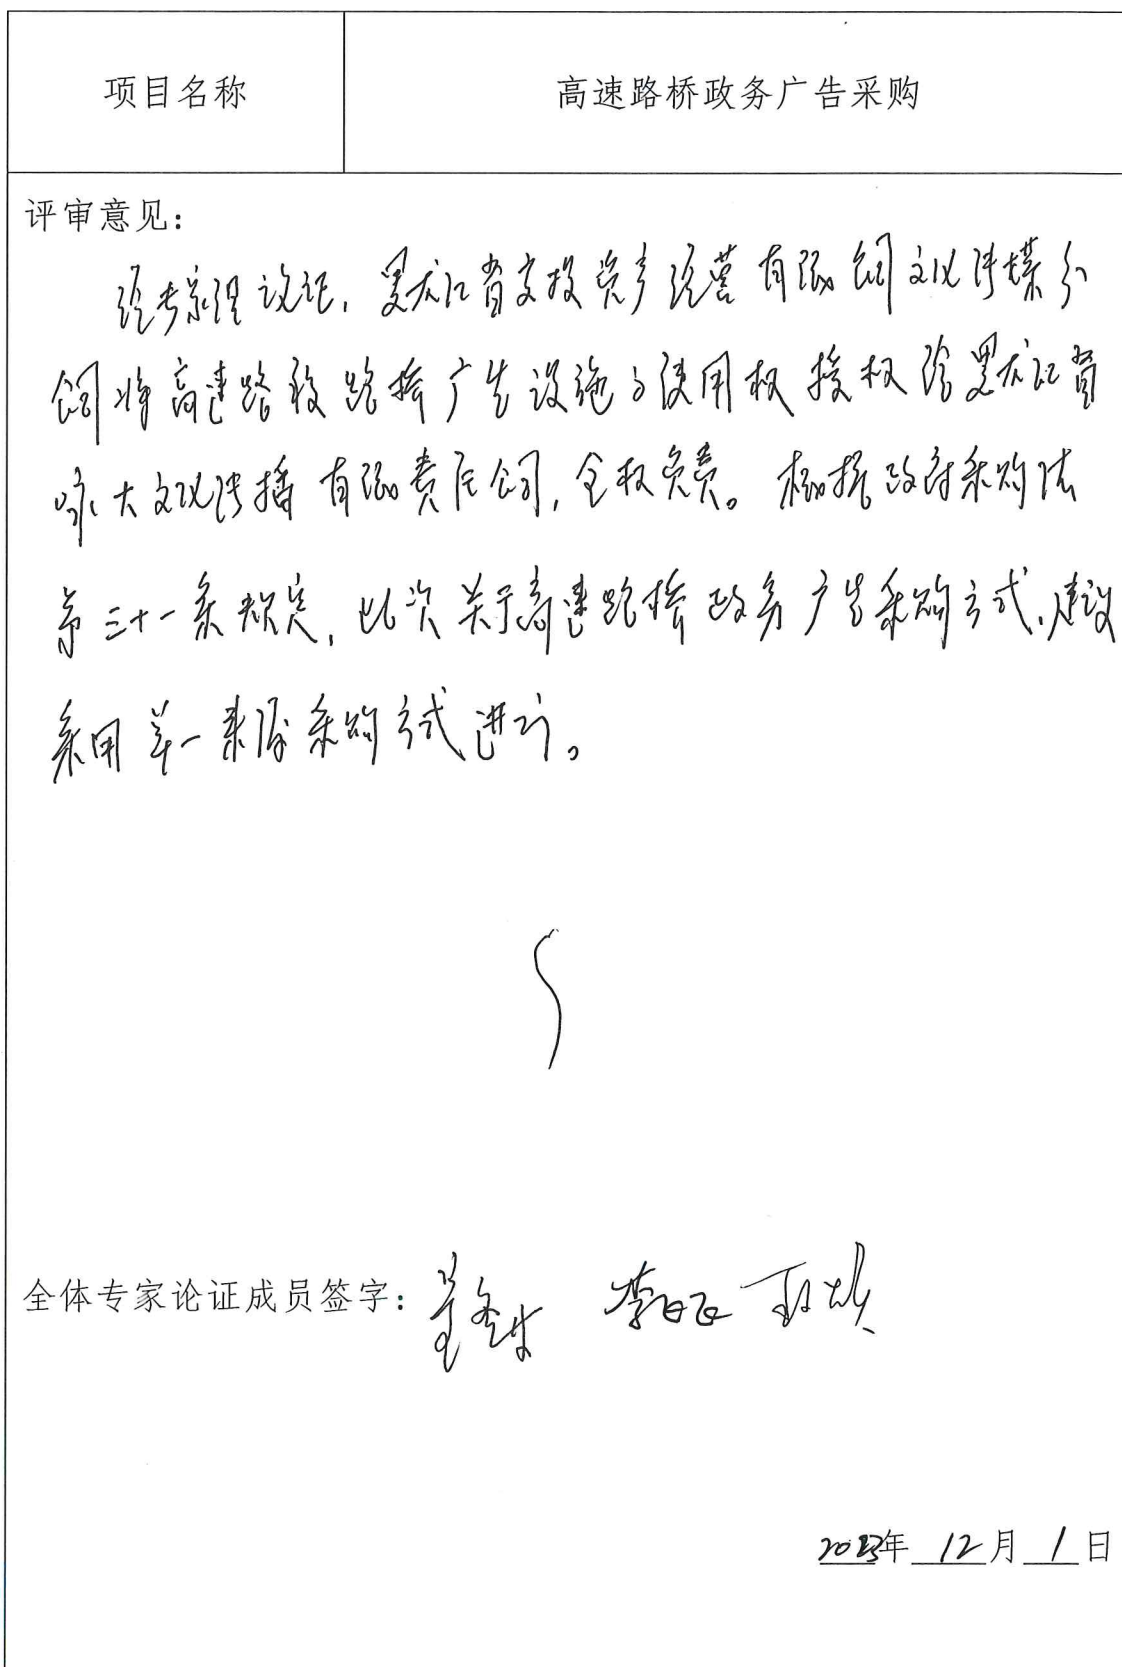 项目名称
高速路桥政务广告采购
评审意见:
经专家组论证,黑龙江省交投资产经营有限公司文化传媒分
公司将高速路段路桥广告设施的使用权授权给黑龙江省
咏大文化传播有限责任公司,全权负责。根据政府采购法
第三十一条规定,此次关于高速路桥政务广告采购方式,建议
采用单一来源采购方式进行。
全体专家论证成员签字:
2023年 12 月 1 日